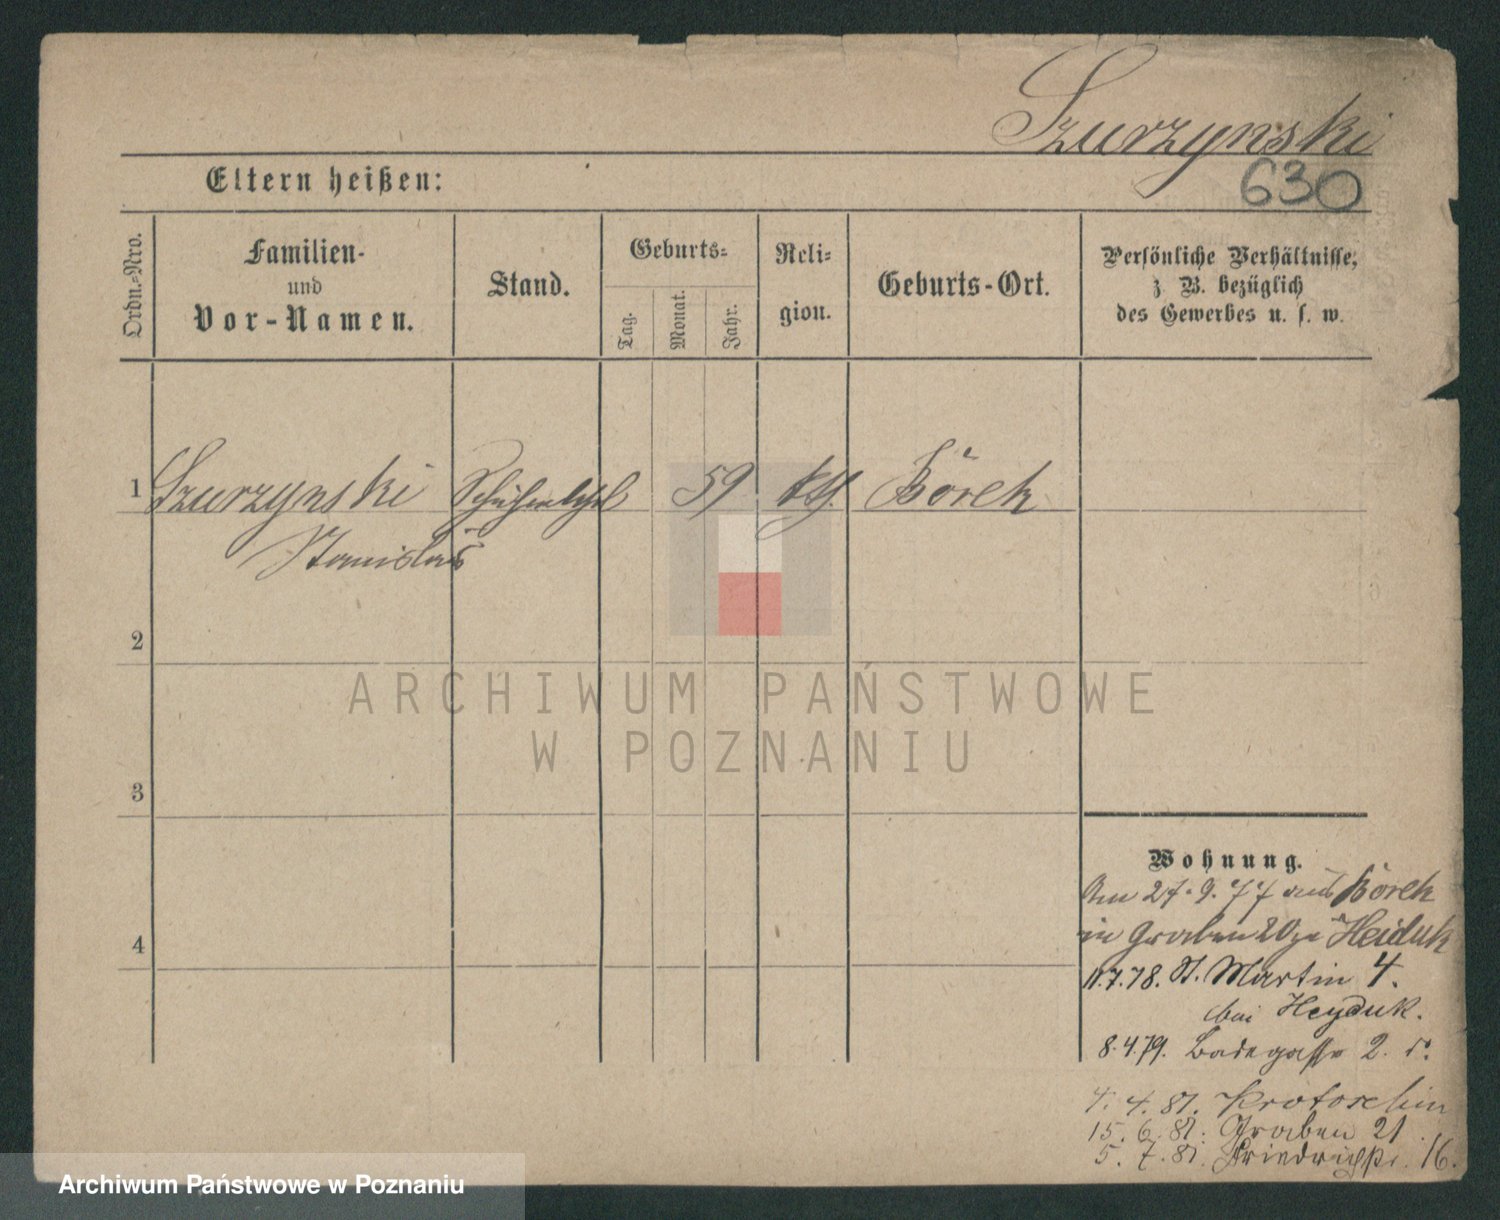 Szurzynski
630
Eltern heißen:
Ordn.-Nro.
Familien-
und
Vor-Namen.
Stand.
Geburts-
Tag.
Monat.
Jahr.
Reli-
gion.
Geburts-Ort.
Persönliche Verhältnisse,
z B. bezüglich
des Gewerbes u. s. w.
1 Szurzynski 59 kth. Borek
Stanislaus
2
ARCHIWUM PAŃSTWOWE
W POZNANIU
3
Wohnung.
Am 27.9.77 aus Borek
in Graben 20 zu Heiduk
4
11.7.78. St. Martin 4.
bei Heyduk.
8.4.79. Badegasse 2.
4. 4. 81. Krotoschin
15. 6. 81. Graben 21
5. 7. 81. Friedrichstr. 16.
Archiwum Państwowe w Poznaniu